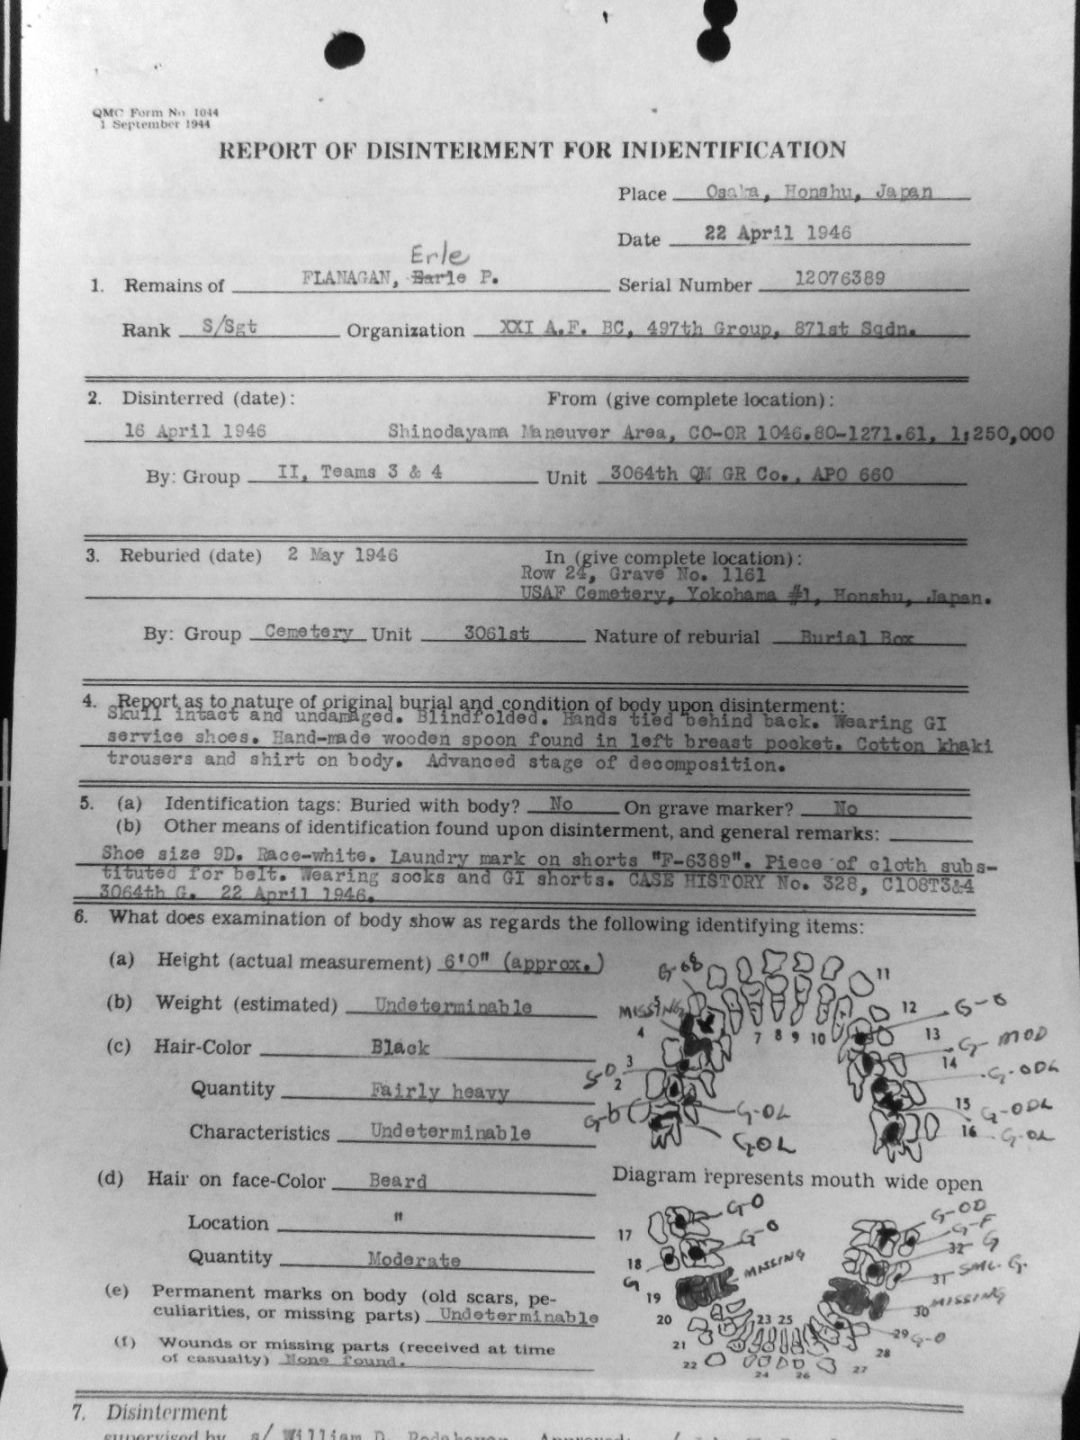 QMC Form No 1044
1 September 1944
REPORT OF DISINTERMENT FOR INDENTIFICATION
Place Osaka, Honshu, Japan
Date 22 April 1946
Erle
1. Remains of FLANAGAN, Earle P. Serial Number 12076389
Rank S/Sgt Organization XXI A.F. BC, 497th Group, 871st Sqdn.
2. Disinterred (date): From (give complete location):
16 April 1946 Shinodayama Maneuver Area, CO-OR 1046.80-1271.61, 1:250,000
By: Group II, Teams 3 & 4 Unit 3064th QM GR Co., APO 660
3. Reburied (date) 2 May 1946 In (give complete location):
Row 24, Grave No. 1161
USAF Cemetery, Yokohama #1, Honshu, Japan.
By: Group Cemetery Unit 3061st Nature of reburial Burial Box
4. Report as to nature of original burial and condition of body upon disinterment:
Skull intact and undamaged. Blindfolded. Hands tied behind back. Wearing GI
service shoes. Hand-made wooden spoon found in left breast pocket. Cotton khaki
trousers and shirt on body. Advanced stage of decomposition.
5. (a) Identification tags: Buried with body? No On grave marker? No
(b) Other means of identification found upon disinterment, and general remarks:
Shoe size 9D. Race-white. Laundry mark on shorts "F-6389". Piece of cloth subs-
tituted for belt. Wearing socks and GI shorts. CASE HISTORY No. 328, C108T3&4
3064th G. 22 April 1946.
6. What does examination of body show as regards the following identifying items:
(a) Height (actual measurement) 6'0" (approx.)
(b) Weight (estimated) Undeterminable
(c) Hair-Color Black
Quantity Fairly heavy
Characteristics Undeterminable
(d) Hair on face-Color Beard
Location "
Quantity Moderate
(e) Permanent marks on body (old scars, pe-
culiarities, or missing parts) Undeterminable
(f) Wounds or missing parts (received at time
of casualty) None found.
11
MISSING 5 12 G-O
4 7 8 9 10 13 G-MOD
3 14 G-ODL
2
15 G-ODL
G-OL
16 G-OL
GOL
Diagram represents mouth wide open
17 G-O G-OD
G-O G-F
18 MISSING 32 G
G 31 SML G.
19 30 MISSING
20 23 25 29 G-O
21 28
22 24 26 27
7. Disinterment
supervised by s/ William D. Approved: